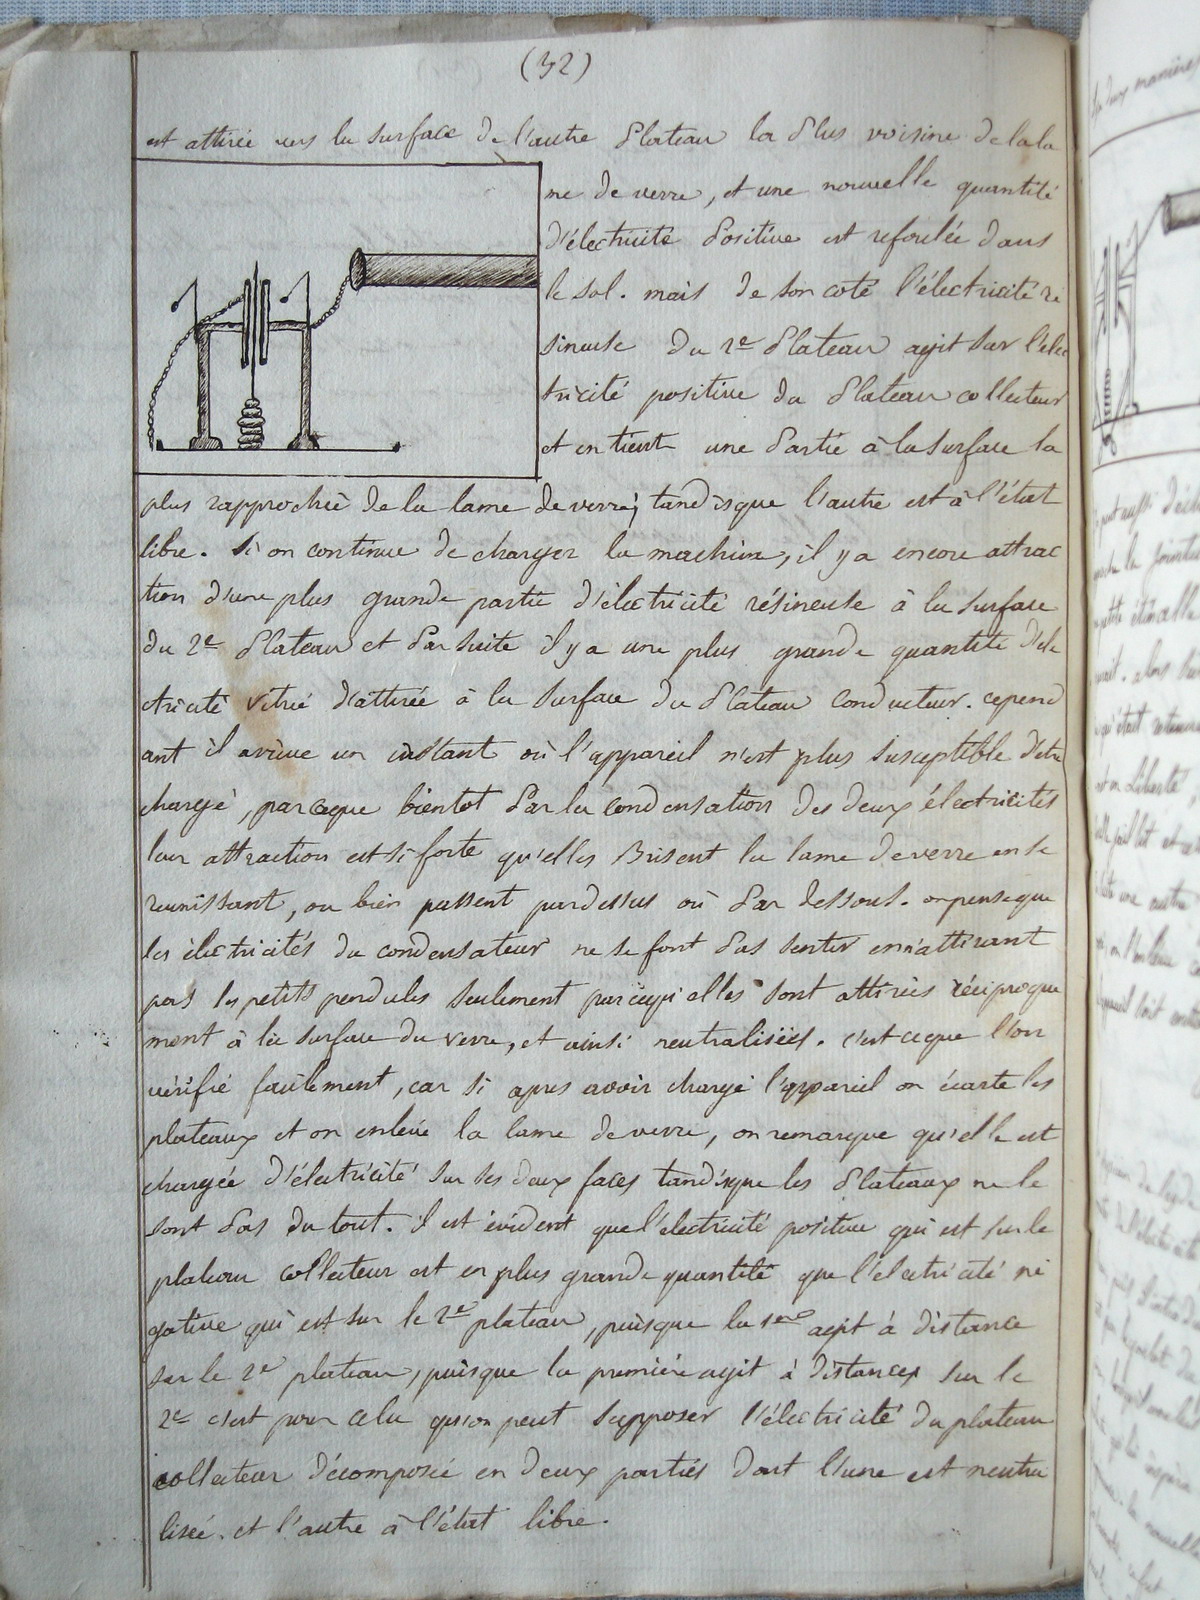 (32)
est attirée vers la surface de l'autre Plateau la Plus voisine de la la
me de verre, et une nouvelle quantité
d'électricité Positive est refoulée dans
le sol. mais de son coté l'électricité ré
sineuse du 2e Plateau agit sur l'élec
tricité positive du Plateau collecteur
et en tient une Partie à la surface la
plus rapprochée de la lame de verre; tandisque l'autre est à l'état
libre. Si on continue de charger la machine, il y a encore attrac
tion d'une plus grande partie d'électricité résineuse à la surface
du 2e Plateau et Par suite il y a une plus grande quantité d'éle
ctricité vitrée d'attirée à la surface du Plateau conducteur. cepend
ant il arrive un instant où l'appareil n'est plus susceptible d'etre
chargé, parceque bientot Par la condensation des deux électricités
leur attraction est si forte qu'elles Brisent la lame de verre en se
reunissant, ou bien passent pardessus où Par dessous. on pense que
les électricités du condensateur ne se font Pas sentir en n'attirant
pas les petits pendules seulement parcequ'elles sont attirées réciproque
ment à la surface du verre, et ainsi neutralisées. c'est ceque l'on
vérifie facilement, car si apres avoir chargé l'appareil on écarte les
plateaux et on enlève la lame de verre, on remarque qu'elle est
chargée d'électricité sur ses deux faces tandisque les Plateaux ne le
sont Pas du tout. il est évident que l'electricité positive qui est sur le
plateau collecteur est en plus grande quantité que l'électricité né
gative qui est sur le 2e plateau, puisque la 1ere agit à distance
sur le 2e plateau, puisque la première agit à distances sur le
2e c'est pour cela qu'on peut supposer l'électricité du plateau
collecteur décomposée en deux parties dont l'une est neutra
lisée. et l'autre à l'état libre.